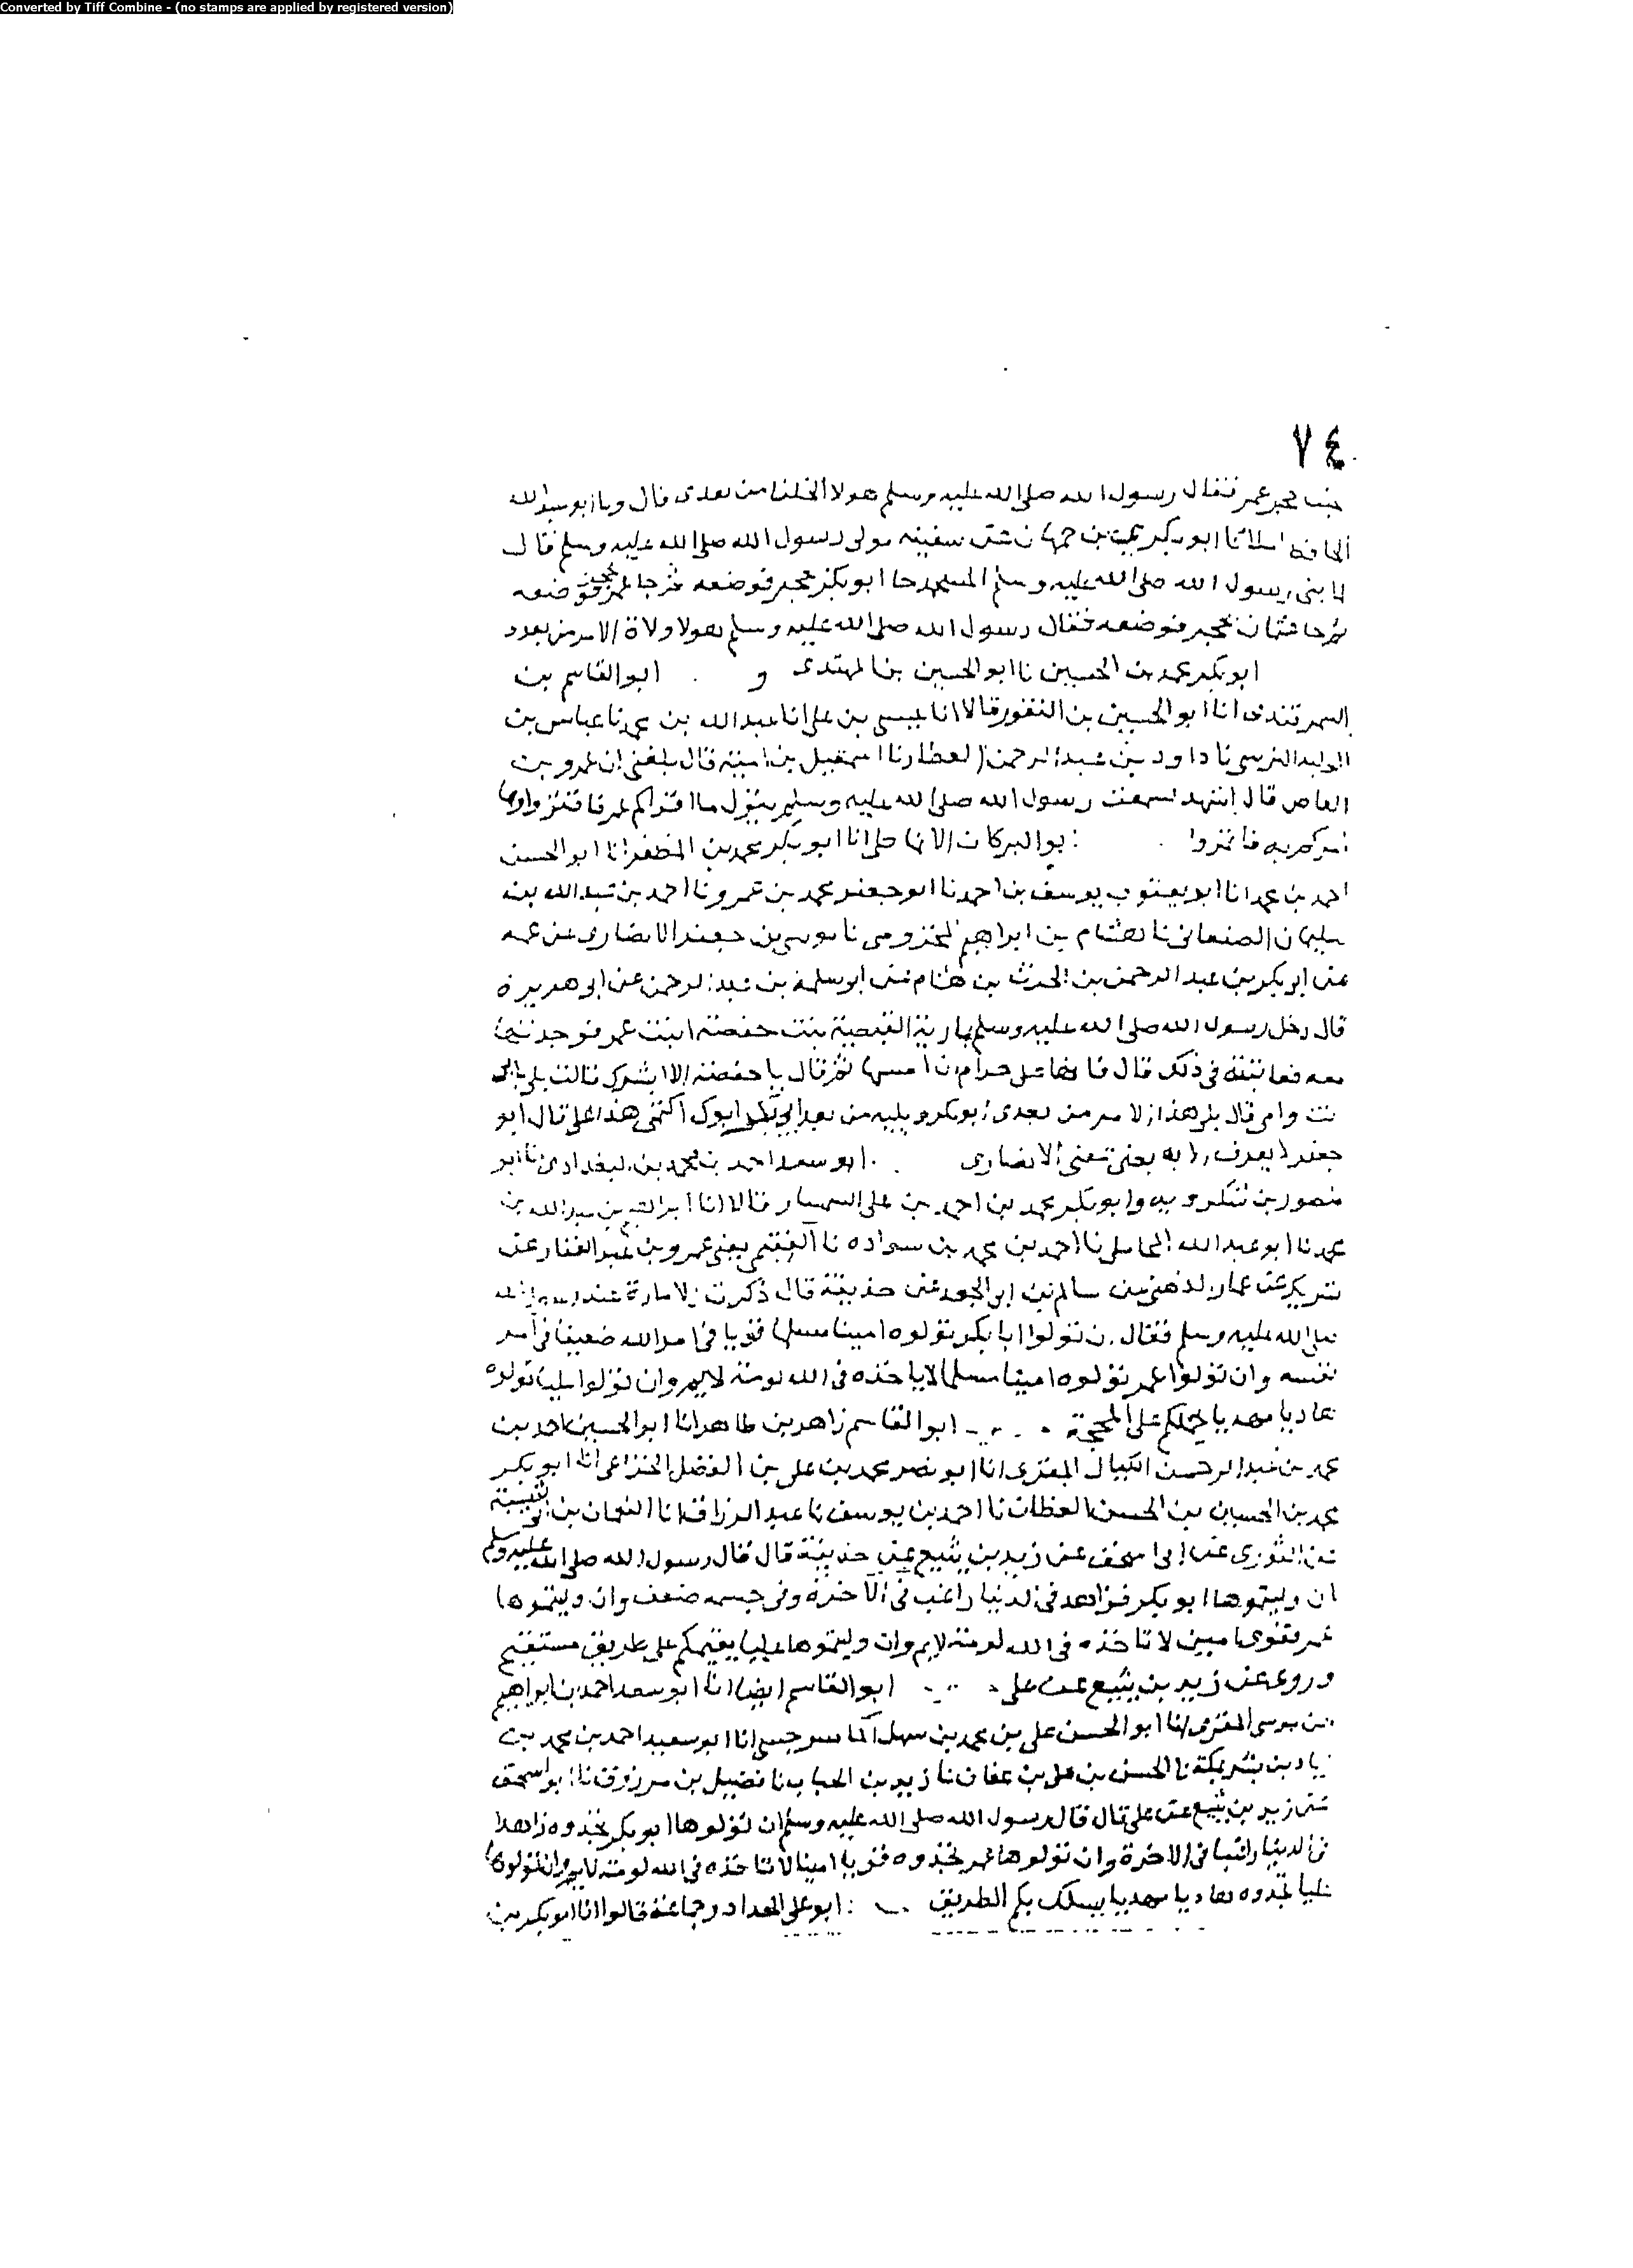 Converted by Tiff Combine - (no stamps are applied by registered version)
٧٤
حجر عمر فقال رسول الله صلى الله عليه وسلم هولا الخلفا من بعدى قال ونا ابو عبد الله
الحافظ املانا ابو بكر محمد بن عن سفينه مولى رسول الله صلى الله عليه وسلم قال
لما بنى رسول الله صلى الله عليه وسلم المسجد جا ابو بكر بحجر فوضعه ثم جا عمر بحجر فوضعه
ثم جا عثمان بحجر فوضعه فقال رسول الله صلى الله عليه وسلم هولا ولاة الامر من بعدى
ابو بكر محمد بن الحسين نا ابو الحسين بن المهتدى و ابو القاسم بن
السمرقندى انا ابو الحسين بن النقور قالا انا عيسى بن على انا عبد الله بن محمد نا عباس بن
الوليد النرسى نا داود بن عبد الرحمن العطار نا اسمعيل بن امية قال بلغنى ان عمرو بن
العاص قال اشهد لسمعت رسول الله صلى الله عليه وسلم يقول ما اقراكم عمر فاقرؤا وما
امركم به فائتمروا ابو البركات الانماطى انا ابو بكر محمد بن المظفر انا ابو الحسن
احمد بن محمد انا ابو يعقوب يوسف بن احمد نا ابو جعفر محمد بن عمرو نا احمد بن عبد الله بن
سليمان الصنعانى نا هشام بن ابراهيم المخزومى نا موسى بن جعفر الانصارى عن عمه
عن ابى بكر بن عبد الرحمن بن الحرث بن هشام عن ابو سلمة بن عبد الرحمن عن ابى هريرة
قال دخل رسول الله صلى الله عليه وسلم بمارية القبطية بيت حفصة ابنت عمر فوجدتها
معه فعاتبته فى ذلك قال فانها على حرام ان امسها ثم قال يا حفصة الا ابشرك قالت بلى بابى
انت وامى قال يلى هذا الامر من بعدى ابو بكر ويليه من بعد ابى بكر ابوك اكتمى هذا على قال ابو
جعفر لا يعرف الا به يعنى الانصارى ابو سعد احمد بن محمد بن البغدادى نا ابو
منصور بن شكرويه وابو بكر محمد بن احمد بن على السمسار قالا انا ابراهيم بن عبد الله بن
محمد نا ابو عبد الله المحاملى نا احمد بن محمد بن سواده نا الفقيمى يعنى عمرو بن عبد الغفار عن
شريك عن عمار الدهنى عن سالم بن ابى الجعد عن حذيفة قال ذكرت الامارة عند رسول الله
صلى الله عليه وسلم فقال ان تولوا ابا بكر تولوه امينا مسلما قويا فى امر الله ضعيفا فى امر
نفسه وان تولوا عمر تولوه امينا مسلما لا ياخذه فى الله لومة لايم وان تولوا عليا تولوه
هاديا مهديا يحملكم على المحجة ابو القاسم زاهر بن طاهر انا ابو الحسين احمد بن
محمد بن عبد الرحمن الكيال المقرى انا ابو نصر محمد بن على بن الفضل الخزاعى انا ابو بكر
محمد بن الحسين بن الحسن القطان نا احمد بن يوسف نا عبد الرزاق انا النعمان بن ابى شيبة
عن الثورى عن ابى اسحق عن زيد بن يثيع عن حذيفة قال قال رسول الله صلى الله عليه وسلم
ان وليتموها ابو بكر فزاهد فى الدنيا راغب فى الآخرة وفى جسمه ضعف وان وليتموها
عمر فقوى امين لا تاخذه فى الله لومة لايم وان وليتموها عليا يقيمكم على طريق مستقيم
وروى عن زيد بن يثيع عن على ابو القاسم ايضا انا ابو سعد احمد بن ابراهيم
بن موسى المقرى انا ابو الحسن على بن محمد بن سهل الماسرجسى انا ابو سعيد احمد بن محمد بن
زياد بن بشر بمكة نا الحسن بن على بن عفان نا زيد بن الحباب نا فضيل بن مرزوق نا ابو اسحق
عن زيد بن يثيع عن على قال قال رسول الله صلى الله عليه وسلم ان تولوها ابو بكر تجدوه زاهدا
فى الدنيا راغبا فى الاخرة وان تولوها عمر تجدوه قويا امينا لا تاخذه فى الله لومة لايم وان تولوها
عليا تجدوه هاديا مهديا يسلك بكم الطريق ابو على الحداد وجماعة قالوا انا ابو بكر بن